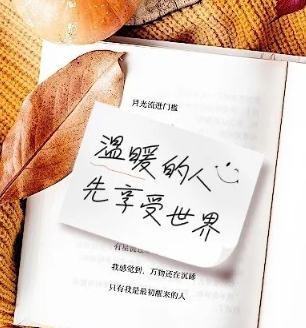 月光流进门槛
温暖的人
先享受世界
我感觉到,万物还在沉睡
只有我是最初醒来的人